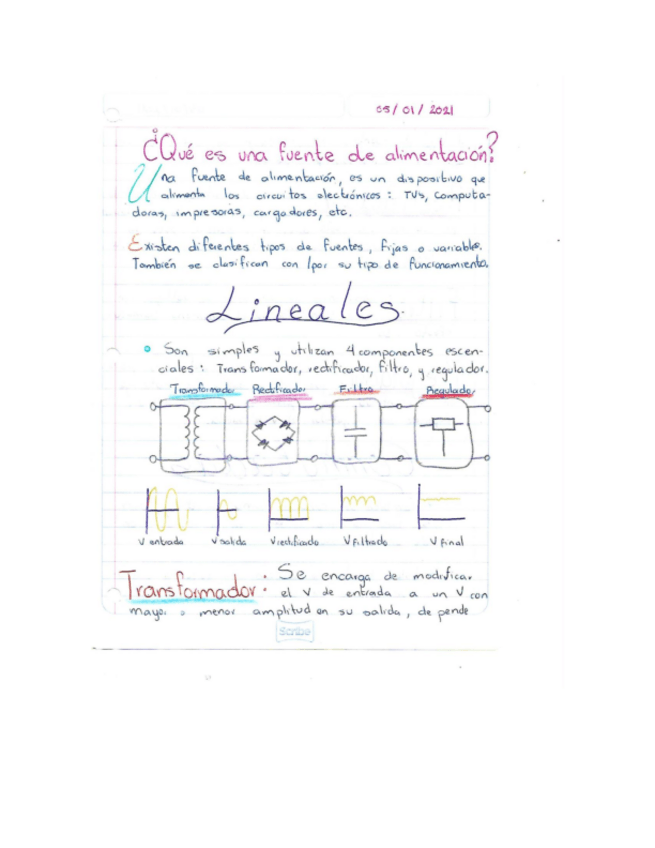 05/01/2021
¿Qué es una fuente de alimentación?
Una fuente de alimentación, es un dispositivo que
alimenta los circuitos electrónicos: TVs, computa-
doras, impresoras, cargadores, etc.
Existen diferentes tipos de fuentes, fijas o variable.
También se clasifican con /por su tipo de funcionamiento.
Lineales.
Son simples y utilizan 4 componentes escen-
ciales: Transformador, rectificador, filtro, y regulador.
Transformador Rectificador Filtro Regulador
V entrada V salida V rectificado V filtrado V final
Transformador: Se encarga de modificar
el V de entrada a un V con
mayor o menor amplitud en su salida, de pende
Scribe